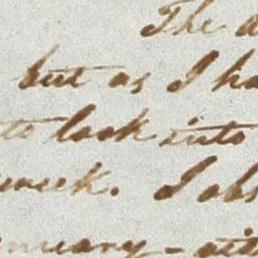 The d
but as I ha
to look into
week. I obs
nuary - eit